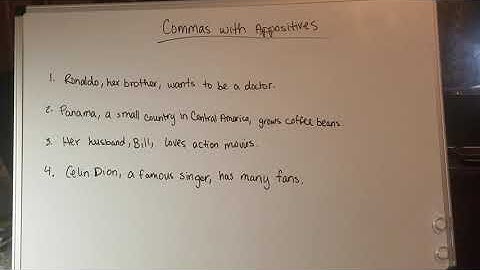 Commas with Appositives
1. Ronaldo, her brother, wants to be a doctor.
2. Panama, a small country in Central America, grows coffee beans
3. Her husband, Bill, loves action movies.
4. Celin Dion, a famous singer, has many fans.